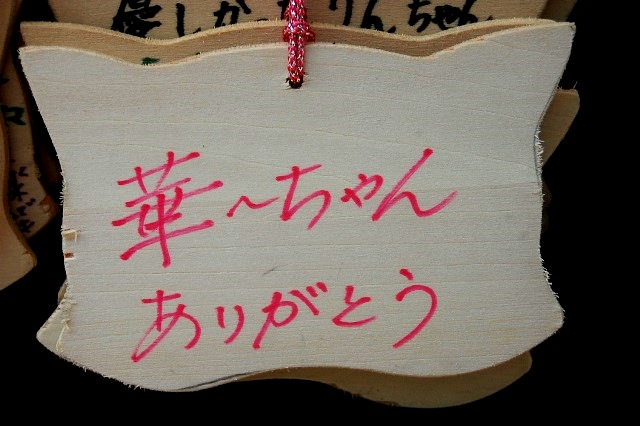 優しかったりんちゃん
華〜ちゃん
ありがとう